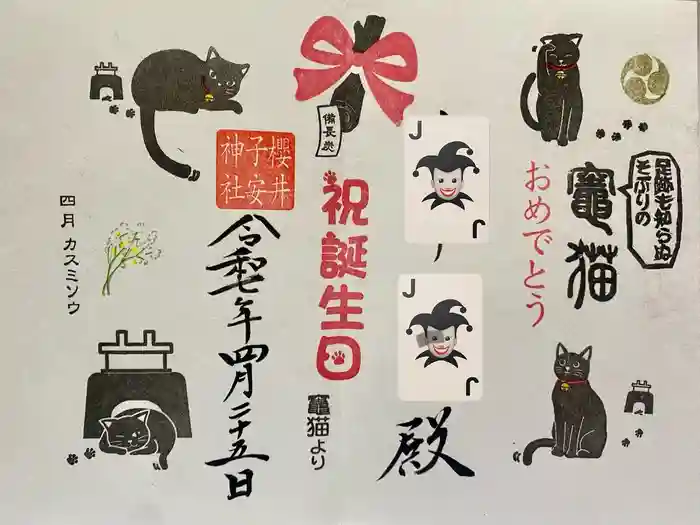 足跡も知らぬ
そぶりの
竈猫
おめでとう
殿
備長炭
祝誕生日
竈猫より
櫻井
子安
神社
令和七年四月二十五日
四月 カスミソウ
J
J
J
J